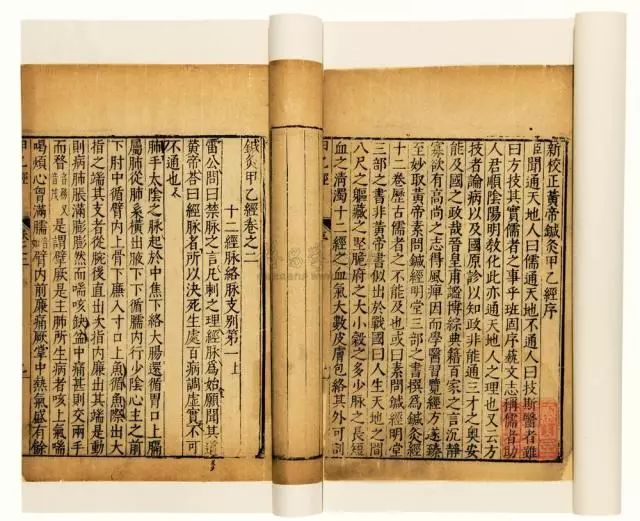 新校正黃帝鍼灸甲乙經序
臣聞通天地人曰儒通天地不通人曰技斯醫者雖
曰方技其實儒者之事乎班固序蓺文志稱儒者助
人君順陰陽明教化此亦通天地人之理也又云方
技者論病以及國原診以知政非能通三才之奥安
能及國之政哉晉皇甫謐博綜典籍百家之言沉靜
寡欲有高尚之志得風痺因而學醫習覽經方遂臻
至妙取黃帝素問鍼經明堂三部之書撰爲鍼灸經
十二卷歷古儒者之不能及也或曰素問鍼經明堂
三部之書非黃帝書似出於戰國曰人生天地之間
八尺之軀藏之堅脆府之大小穀之多少脉之長短
血之清濁十二經之血氣大數皮膚包絡其外可剖
甲乙經
鍼灸甲乙經卷之二
十二經脉絡脉支別第一上
雷公問曰禁脉之言凡刺之理經脉爲始願聞其道
黃帝荅曰經脉者所以決死生處百病調虛實不可
不通也
肺手太陰之脉起於中焦下絡大腸還循胃口上膈
屬肺從肺系橫出腋下下循臑內行少陰心主之前
下肘中循臂內上骨下廉入寸口上魚循魚際出大
指之端其支者從腕後直出次指內廉出其端是動
則病肺脹滿膨膨然而喘咳缺盆中痛甚則交兩手
而瞀音務又音茂是謂臂厥是主肺所生病者咳上氣喘
喝煩心胷滿臑音如臂內前廉痛厥掌中熱氣盛有餘
甲乙經
卷二